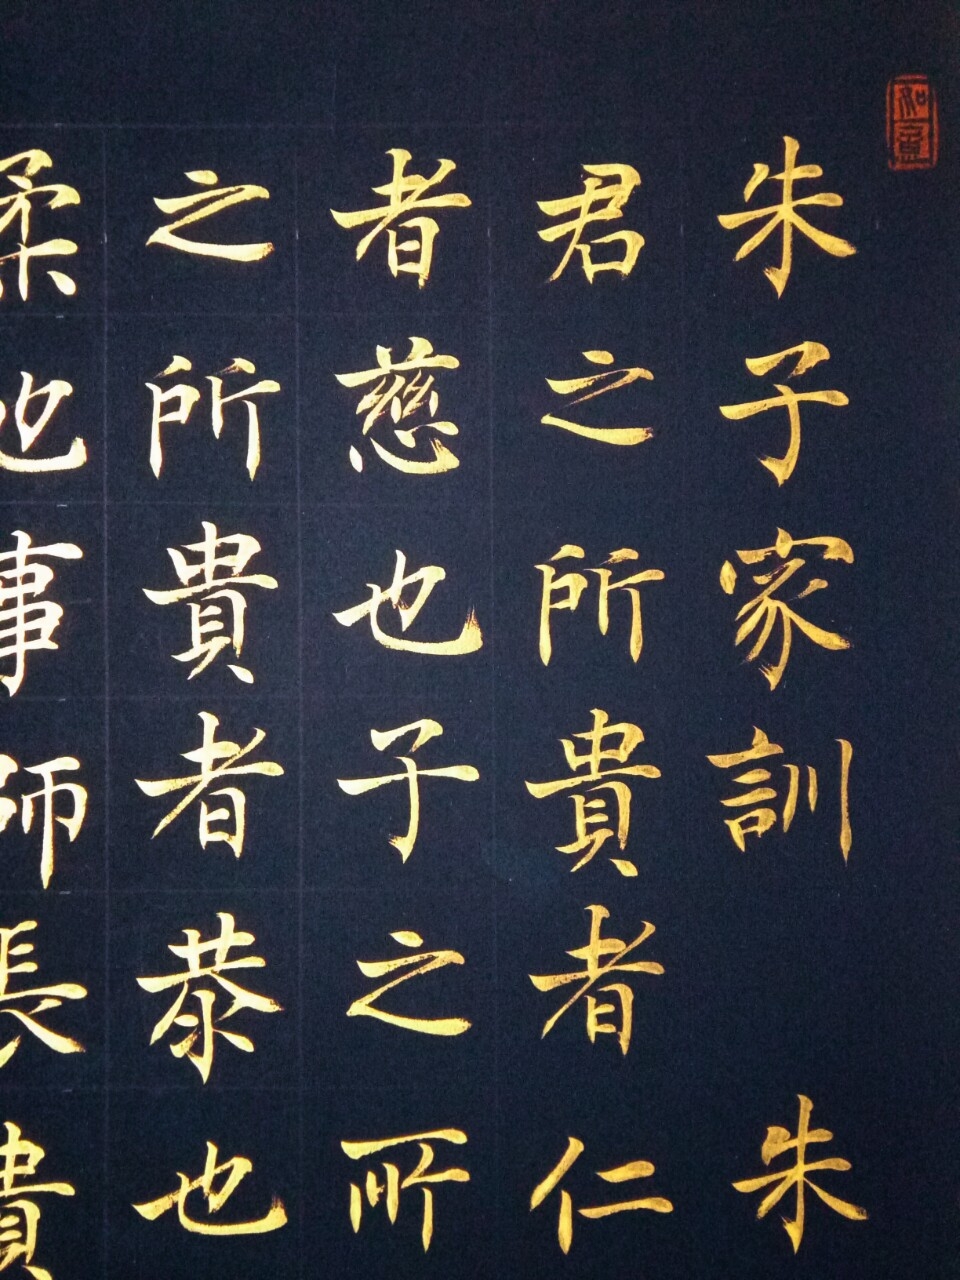 如意
朱子家訓 朱
君之所貴者仁
者慈也子之所
之所貴者恭也
柔也事師長貴